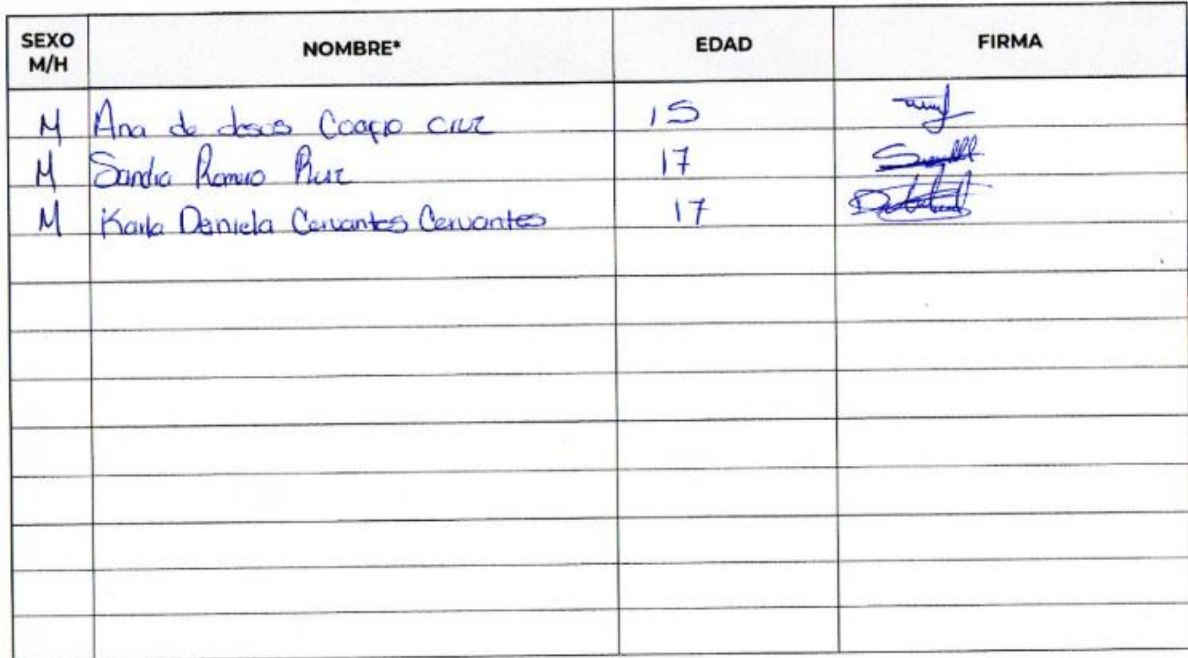 SEXO M/H NOMBRE* EDAD FIRMA
M Ana de Jesus Cruz 15
M Sandra Romero Ruiz 17
M Karla Daniela Cervantes Cervantes 17